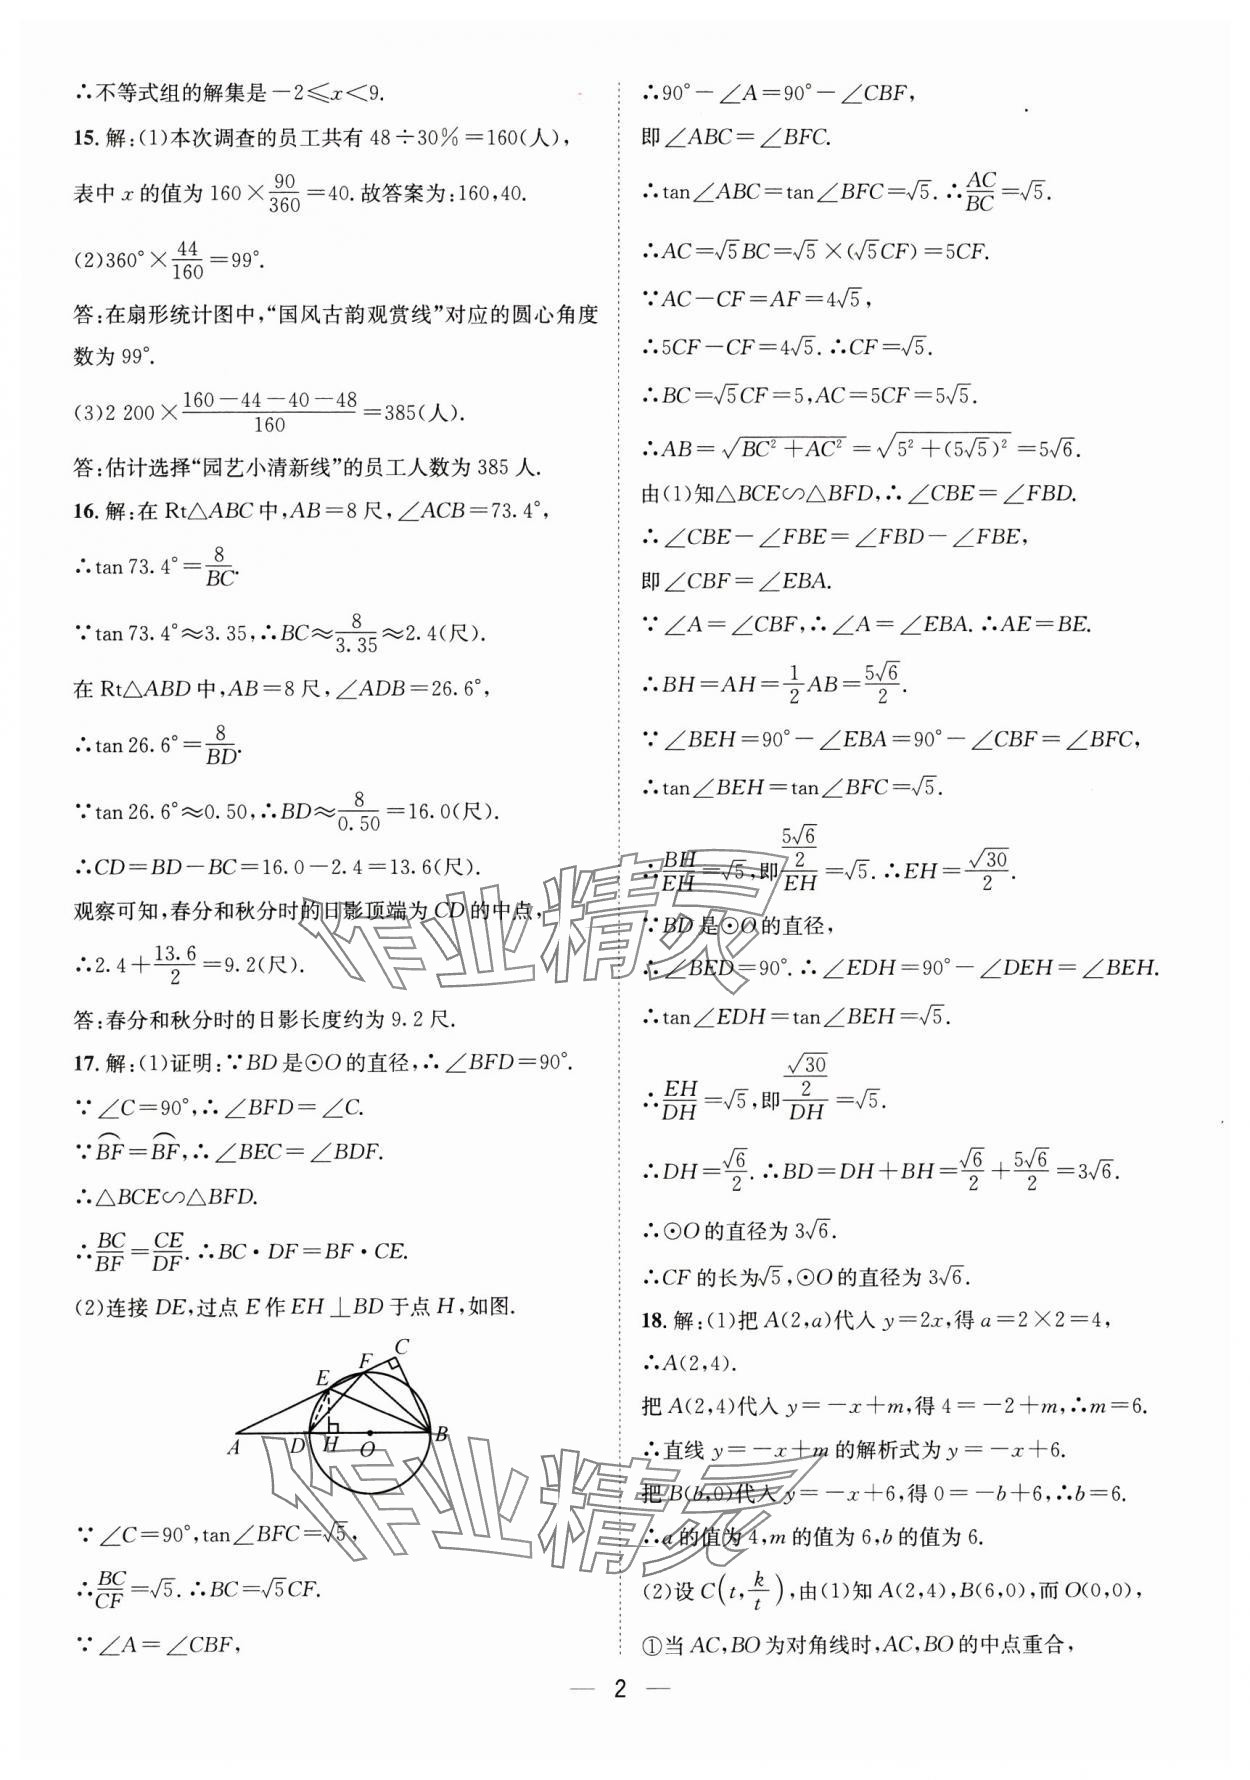 ∴不等式组的解集是－2⩽x＜9.
15. 解:(1)本次调查的员工共有 48÷30％＝160(人),
表中 x 的值为 160×90/360＝40. 故答案为:160,40.
(2)360°×44/160＝99°.
答:在扇形统计图中,“国风古韵观赏线”对应的圆心角度
数为 99°.
(3)2 200×(160－44－40－48)/160＝385(人).
答:估计选择“园艺小清新线”的员工人数为 385 人.
16. 解:在 Rt△ABC 中,AB＝8 尺,∠ACB＝73.4°,
∴tan 73.4°＝8/BC.
∵tan 73.4°≈3.35,∴BC≈8/3.35≈2.4(尺).
在 Rt△ABD 中,AB＝8 尺,∠ADB＝26.6°,
∴tan 26.6°＝8/BD.
∵tan 26.6°≈0.50,∴BD≈8/0.50＝16.0(尺).
∴CD＝BD－BC＝16.0－2.4＝13.6(尺).
观察可知,春分和秋分时的日影顶端为 CD 的中点,
∴2.4＋13.6/2＝9.2(尺).
答:春分和秋分时的日影长度约为 9.2 尺.
17. 解:(1)证明:∵BD 是⊙O 的直径,∴∠BFD＝90°.
∵∠C＝90°,∴∠BFD＝∠C.
∵⌒BF＝⌒BF,∴∠BEC＝∠BDF.
∴△BCE∽△BFD.
∴BC/BF＝CE/DF. ∴BC·DF＝BF·CE.
(2)连接 DE,过点 E 作 EH⊥BD 于点 H,如图.
C
F
E
A
D
H
O
B
∵∠C＝90°,tan∠BFC＝√5,
∴BC/CF＝√5. ∴BC＝√5CF.
∵∠A＝∠CBF,
∴90°－∠A＝90°－∠CBF,
即∠ABC＝∠BFC.
∴tan∠ABC＝tan∠BFC＝√5. ∴AC/BC＝√5.
∴AC＝√5BC＝√5×(√5CF)＝5CF.
∵AC－CF＝AF＝4√5,
∴5CF－CF＝4√5. ∴CF＝√5.
∴BC＝√5CF＝5,AC＝5CF＝5√5.
∴AB＝√(BC²＋AC²)＝√(5²＋(5√5)²)＝5√6.
由(1)知△BCE∽△BFD,∴∠CBE＝∠FBD.
∴∠CBE－∠FBE＝∠FBD－∠FBE,
即∠CBF＝∠EBA.
∵∠A＝∠CBF,∴∠A＝∠EBA. ∴AE＝BE.
∴BH＝AH＝1/2AB＝5√6/2.
∵∠BEH＝90°－∠EBA＝90°－∠CBF＝∠BFC,
∴tan∠BEH＝tan∠BFC＝√5.
∴BH/EH＝√5,即(5√6/2)/EH＝√5. ∴EH＝√30/2.
∵BD 是⊙O 的直径,
∴∠BED＝90°. ∴∠EDH＝90°－∠DEH＝∠BEH.
∴tan∠EDH＝tan∠BEH＝√5.
∴EH/DH＝√5,即(√30/2)/DH＝√5.
∴DH＝√6/2. ∴BD＝DH＋BH＝√6/2＋5√6/2＝3√6.
∴⊙O 的直径为 3√6.
∴CF 的长为√5,⊙O 的直径为 3√6.
18. 解:(1)把 A(2,a)代入 y＝2x,得 a＝2×2＝4,
∴A(2,4).
把 A(2,4)代入 y＝－x＋m,得 4＝－2＋m,∴m＝6.
∴直线 y＝－x＋m 的解析式为 y＝－x＋6.
把 B(b,0)代入 y＝－x＋6,得 0＝－b＋6,∴b＝6.
∴a 的值为 4,m 的值为 6,b 的值为 6.
(2)设 C(t,k/t),由(1)知 A(2,4),B(6,0),而 O(0,0),
①当 AC,BO 为对角线时,AC,BO 的中点重合,
— 2 —
作业精灵
作业精灵